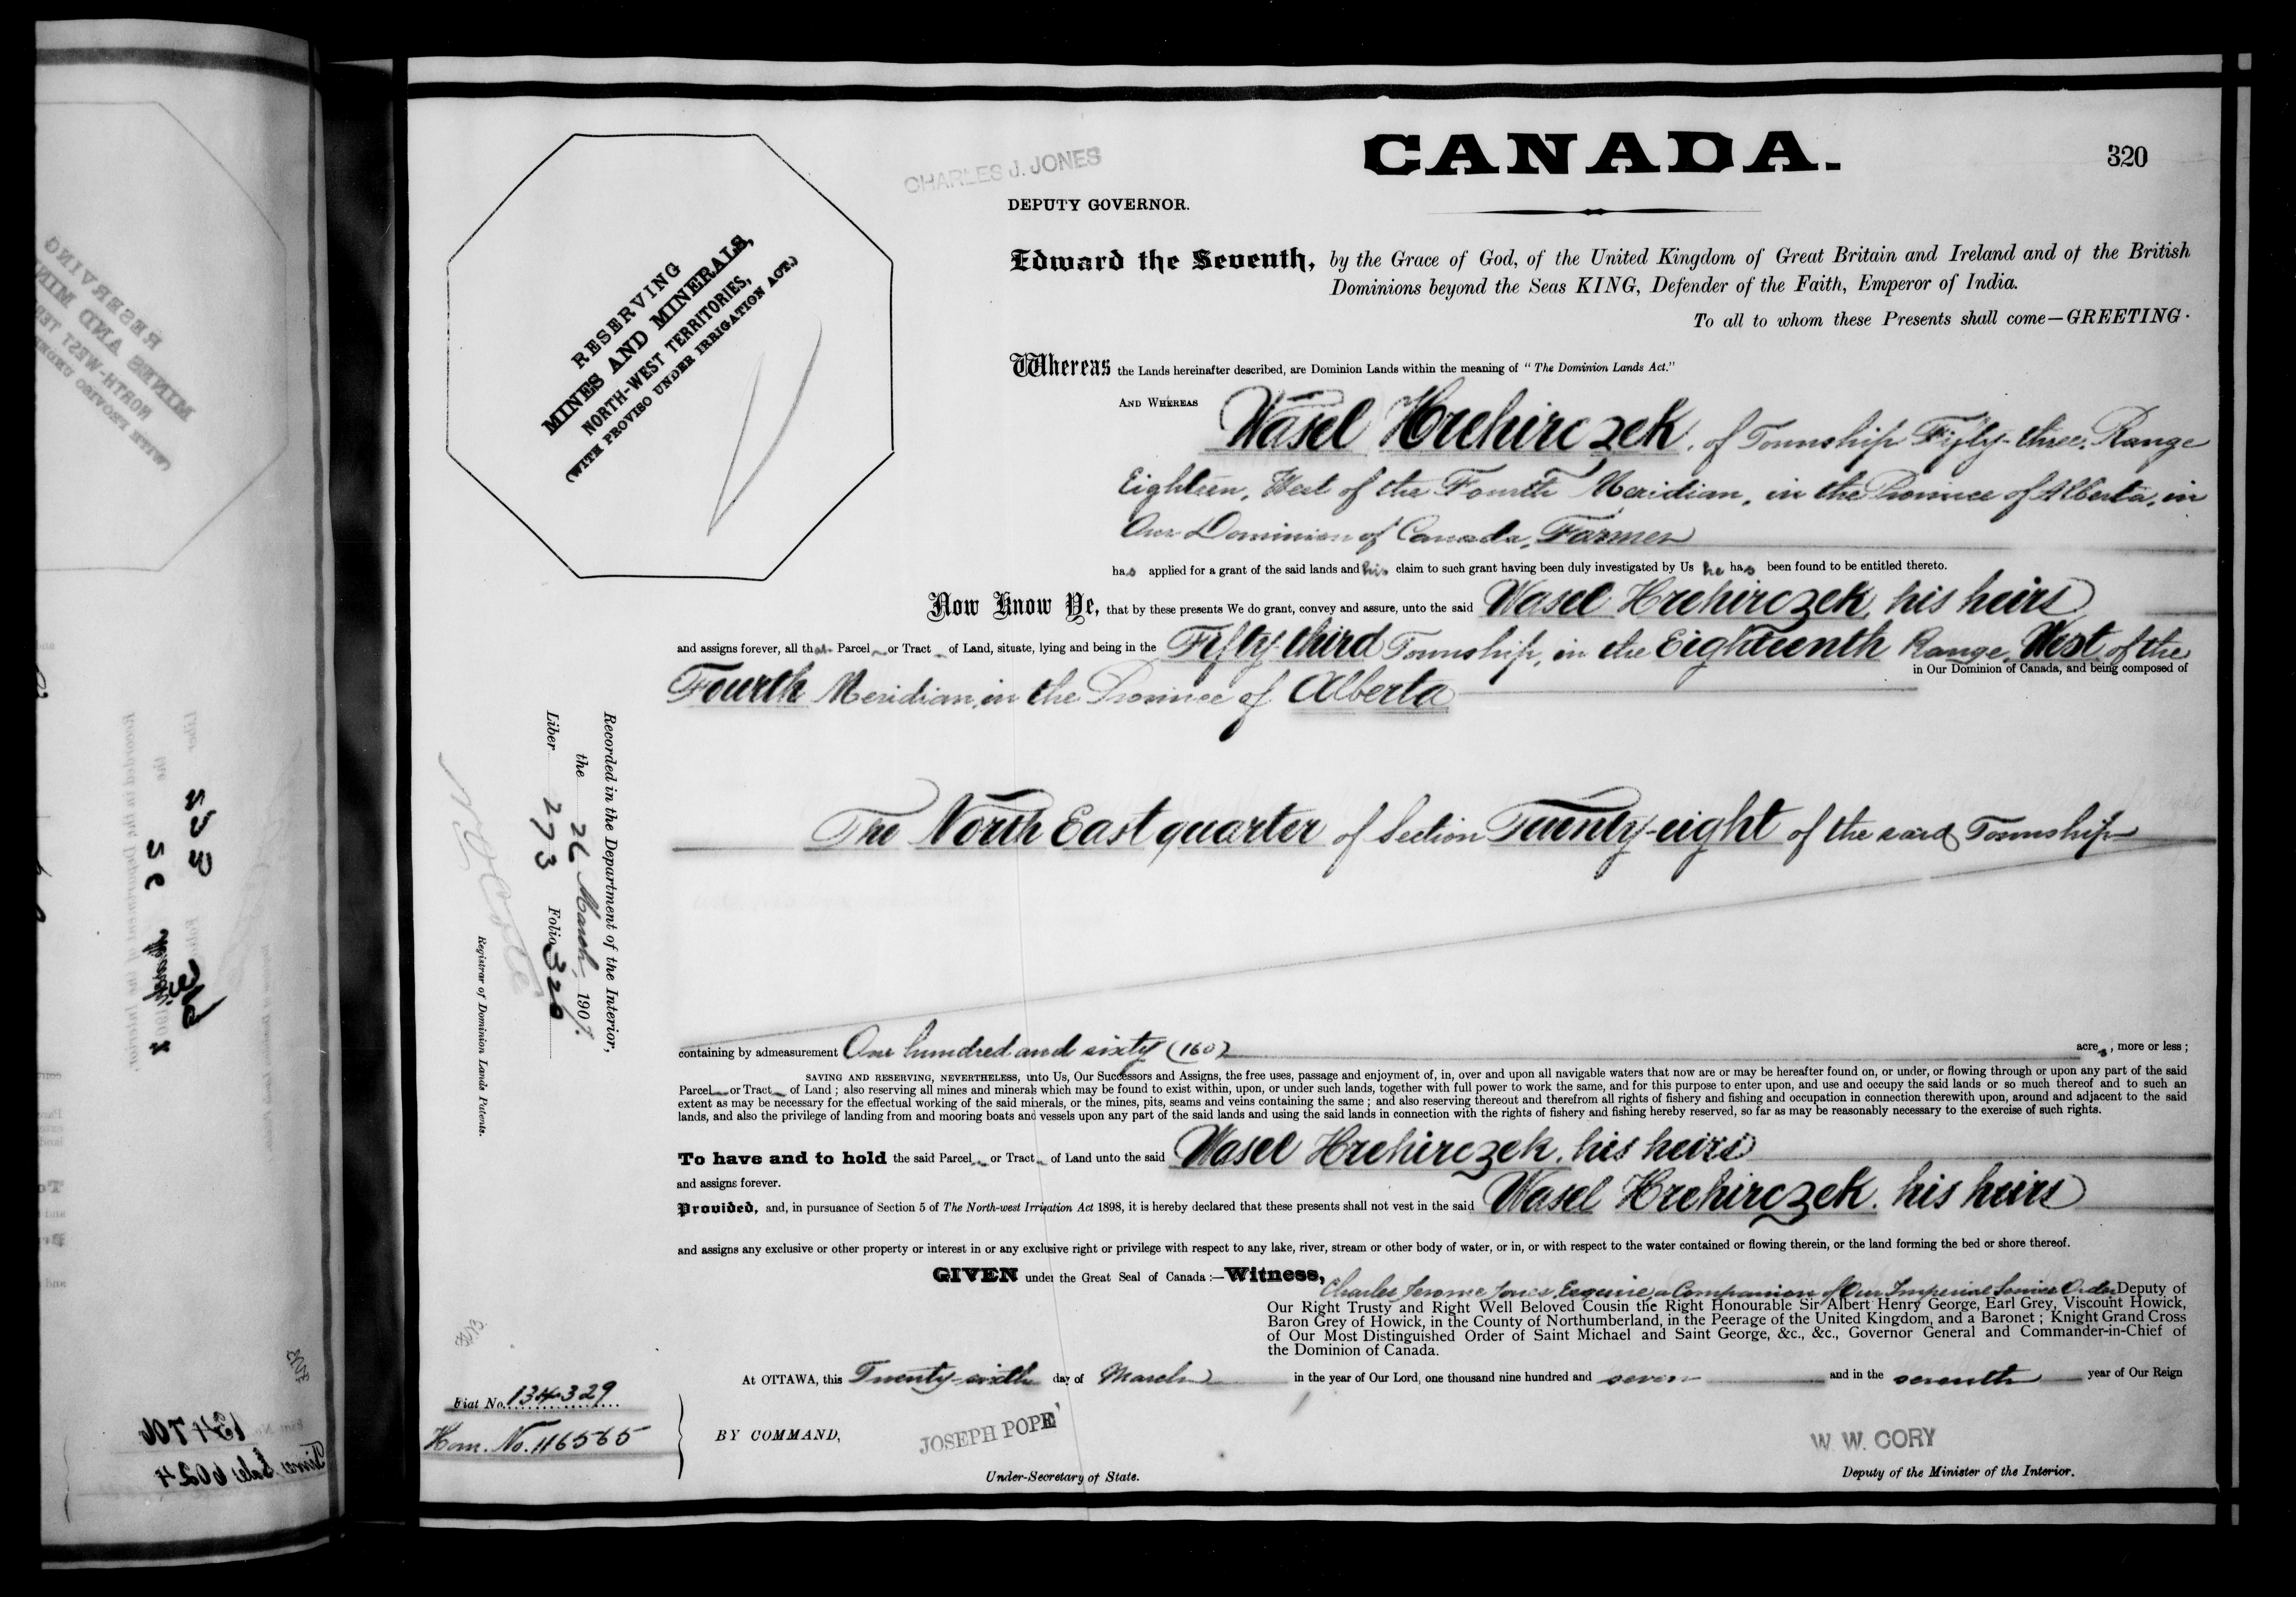 CHARLES J. JONES
DEPUTY GOVERNOR.
CANADA.
320
RESERVING
MINES AND MINERALS,
NORTH-WEST TERRITORIES,
(WITH PROVISO UNDER IRRIGATION ACT.)
Edward the Seventh, by the Grace of God, of the United Kingdom of Great Britain and Ireland and of the British
Dominions beyond the Seas KING, Defender of the Faith, Emperor of India.
To all to whom these Presents shall come—GREETING.
Whereas the Lands hereinafter described, are Dominion Lands within the meaning of "The Dominion Lands Act."
AND WHEREAS Wasel Hrehirczek, of Township Fifty-three, Range
Eighteen, West of the Fourth Meridian, in the Province of Alberta, in
Our Dominion of Canada, Farmer
has applied for a grant of the said lands and his claim to such grant having been duly investigated by Us he has been found to be entitled thereto.
Now Know Ye, that by these presents We do grant, convey and assure, unto the said Wasel Hrehirczek, his heirs
and assigns forever, all that Parcel or Tract of Land, situate, lying and being in the Fifty-third Township, in the Eighteenth Range, West of the
Fourth Meridian, in the Province of Alberta in Our Dominion of Canada, and being composed of
The North East quarter of Section Twenty-eight of the said Township
Recorded in the Department of the Interior,
the 26 March 1907.
Liber 273 Folio 320
Registrar of Dominion Lands Patents.
containing by admeasurement One hundred and sixty (160) acres, more or less;
SAVING AND RESERVING, NEVERTHELESS, unto Us, Our Successors and Assigns, the free uses, passage and enjoyment of, in, over and upon all navigable waters that now are or may be hereafter found on, or under, or flowing through or upon any part of the said
Parcel or Tract of Land; also reserving all mines and minerals which may be found to exist within, upon, or under such lands, together with full power to work the same, and for this purpose to enter upon, and use and occupy the said lands or so much thereof and to such an
extent as may be necessary for the effectual working of the said minerals, or the mines, pits, seams and veins containing the same; and also reserving thereout and therefrom all rights of fishery and fishing and occupation in connection therewith upon, around and adjacent to the said
lands, and also the privilege of landing from and mooring boats and vessels upon any part of the said lands and using the said lands in connection with the rights of fishery and fishing hereby reserved, so far as may be reasonably necessary to the exercise of such rights.
To have and to hold the said Parcel or Tract of Land unto the said Wasel Hrehirczek, his heirs
and assigns forever.
Provided, and, in pursuance of Section 5 of The North-west Irrigation Act 1898, it is hereby declared that these presents shall not vest in the said Wasel Hrehirczek, his heirs
and assigns any exclusive or other property or interest in or any exclusive right or privilege with respect to any lake, river, stream or other body of water, or in, or with respect to the water contained or flowing therein, or the land forming the bed or shore thereof.
GIVEN under the Great Seal of Canada:—Witness,
Charles Jerome Jones, Esquire, a Companion of Our Imperial Service Order Deputy of
Our Right Trusty and Right Well Beloved Cousin the Right Honourable Sir Albert Henry George, Earl Grey, Viscount Howick,
Baron Grey of Howick, in the County of Northumberland, in the Peerage of the United Kingdom, and a Baronet; Knight Grand Cross
of Our Most Distinguished Order of Saint Michael and Saint George, &c., &c., Governor General and Commander-in-Chief of
the Dominion of Canada.
At OTTAWA, this Twenty-sixth day of March in the year of Our Lord, one thousand nine hundred and seven and in the seventh year of Our Reign
Fiat No. 134329
Hom. No. 116565
BY COMMAND,
JOSEPH POPE
Under-Secretary of State.
W. W. CORY
Deputy of the Minister of the Interior.